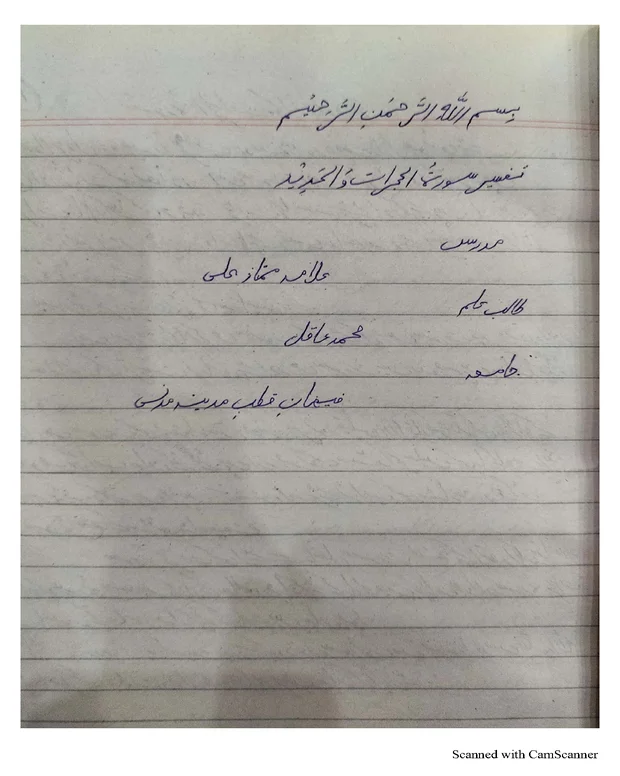 بِسم اللّٰهِ الرَّحمٰنِ الرَّحِیْم
تفسیر سورۃ الحجرات وَالحَدِیْد
مدرس
علامہ ممتاز علی
طالب علم
محمد عاقل
جامعہ
فیضانِ قطبِ مدینہ
Scanned with CamScanner